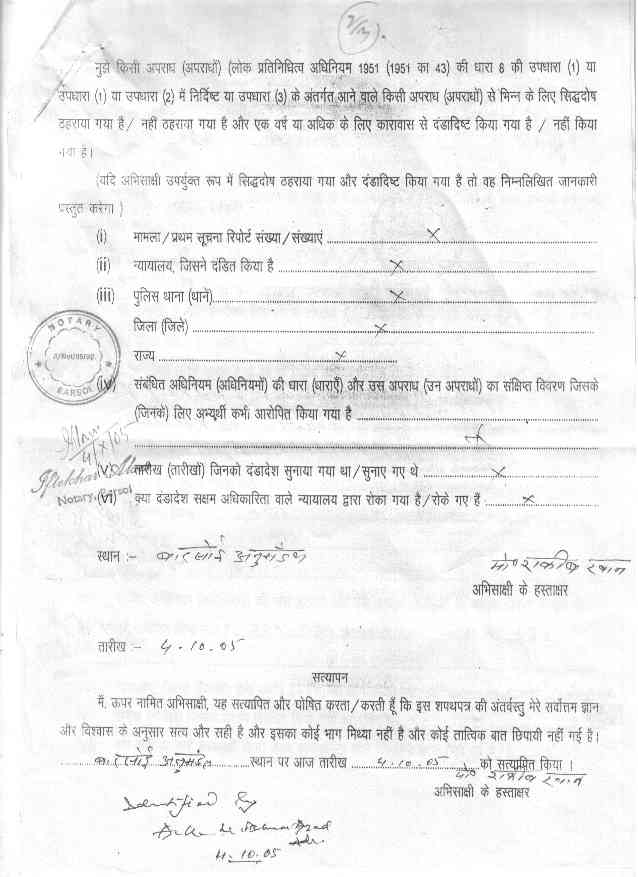 2/3.
मुझे किसी अपराध (अपराधों) (लोक प्रतिनिधित्व अधिनियम 1951 (1951 का 43) की धारा 8 की उपधारा (1) या
उपधारा (1) या उपधारा (2) में निर्दिष्ट या उपधारा (3) के अंतर्गत आने वाले किसी अपराध (अपराधों) से भिन्न के लिए सिद्धदोष
ठहराया गया है / नहीं ठहराया गया है और एक वर्ष या अधिक के लिए कारावास से दंडादिष्ट किया गया है / नहीं किया
गया है।
(यदि अभिसाक्षी उपर्युक्त रूप में सिद्धदोष ठहराया गया और दंडादिष्ट किया गया है तो वह निम्नलिखित जानकारी
प्रस्तुत करेगा )
(i) मामला / प्रथम सूचना रिपोर्ट संख्या / संख्याएं ........ x ........
(ii) न्यायालय, जिसने दंडित किया है ........ x ........
(iii) पुलिस थाना (थाने)........ x ........
जिला (जिले) ........ x ........
राज्य ........ x ........
NOTARY
BARSOI
(iv) संबंधित अधिनियम (अधिनियमों) की धारा (धाराएँ) और उस अपराध (उन अपराधों) का संक्षिप्त विवरण जिसके
(जिनके) लिए अभ्यर्थी कभी आरोपित किया गया है ........
........ x ........
4/X/05
(V) तारीख (तारीखों) जिनको दंडादेश सुनाया गया था / सुनाए गए थे ........ x ........
Notary, Barsoi
(Vi) क्या दंडादेश सक्षम अधिकारिता वाले न्यायालय द्वारा रोका गया है / रोके गए है ........ x ........
स्थान :- बारसोई अनुमंडल
मो० राकीब
अभिसाक्षी के हस्ताक्षर
तारीख :- 4.10.05
सत्यापन
मैं, ऊपर नामित अभिसाक्षी, यह सत्यापित और घोषित करता / करती हूँ कि इस शपथपत्र की अंतर्वस्तु मेरे सर्वोत्तम ज्ञान
और विश्वास के अनुसार सत्य और सही है और इसका कोई भाग मिथ्या नहीं है और कोई तात्विक बात छिपायी नहीं गई है।
बारसोई अनुमंडल ........ स्थान पर आज तारीख ........ 4.10.05 ........ को सत्यापित किया ।
मो० राकीब
अभिसाक्षी के हस्ताक्षर
Identified by
Adv.
4.10.05